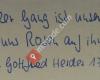 Der Gang ist unser
uns Rosen auf ihr
Gottfried Herder 1